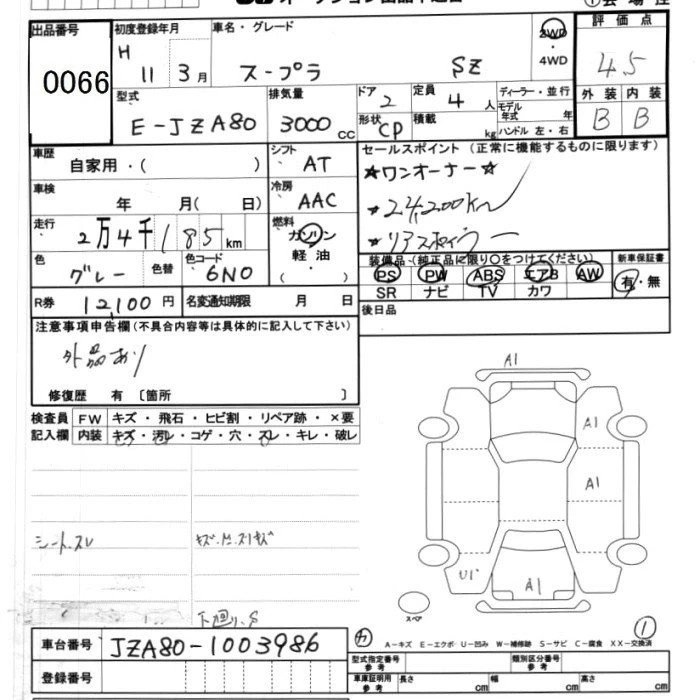 出品番号 初度登録年月 車名・グレード 2WD 評価点
0066 H 11 3月 スープラ SZ ・4WD 4.5
型式 排気量 ドア 定員 ディーラー・並行 外装 内装
E-JZA80 3000cc 2 4人 モデル年式 年 B B
形状 CP 積載 kg ハンドル 左・右
車歴 自家用・( ) シフト AT セールスポイント(正常に機能するものに限ります)
車検 年 月( 日) 冷房 AAC ☆ワンオーナー☆
走行 2万4千185km 燃料 ガソリン 軽油 ・24,200km
・リアスポイラー
色 グレー 色替 色コード 6N0 装備品・(純正品に限り○をつけてください) 新車保証書
PS PW ABS エアB AW 有・無
R券 12,100円 名変通知期限 月 日 SR ナビ TV カワ
注意事項申告欄(不具合内容等は具体的に記入して下さい) 後日品
外品あり
修復歴 有 〔箇所 〕
検査員 FW キズ・飛石・ヒビ割・リペア跡・×要
記入欄 内装 キズ・汚レ・コゲ・穴・スレ・キレ・破レ
A1
A1
A1
シート.スレ
U1
A1
下廻り.S
スペア
カ 1
A-キズ E-エクボ U-凹み W-補修跡 S-サビ C-腐食 XX-交換済
車台番号 JZA80-1003986
型式指定番号 参考 類別区分番号 参考
登録番号 車庫証明用 参考 長さ cm 幅 cm 高さ cm